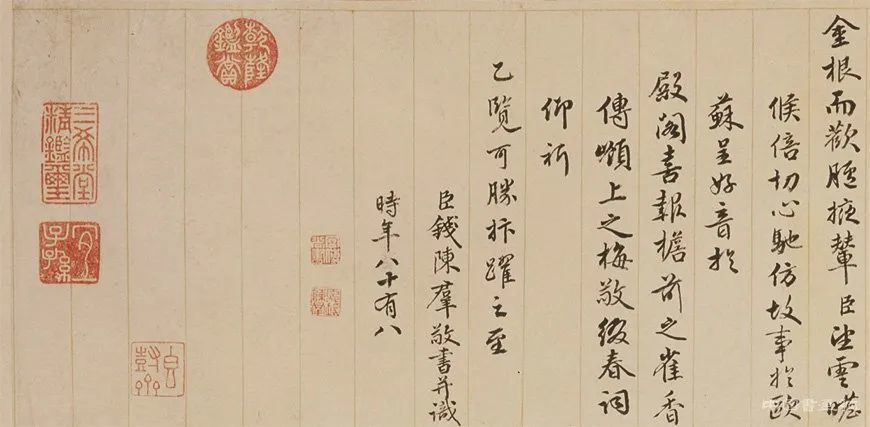 金根而歡膃掖輦臣望雲曕
倏倍切心馳仿故事於歐
蘇呈好音於
殿閣喜報檐前之雀香
傳嶺上之梅敬綴春詞
仰祈
乙覽可勝抃躍之至
臣錢陳羣敬書并識
時年八十有八
乾隆鑑賞
三希堂精鑑璽
宜子孫